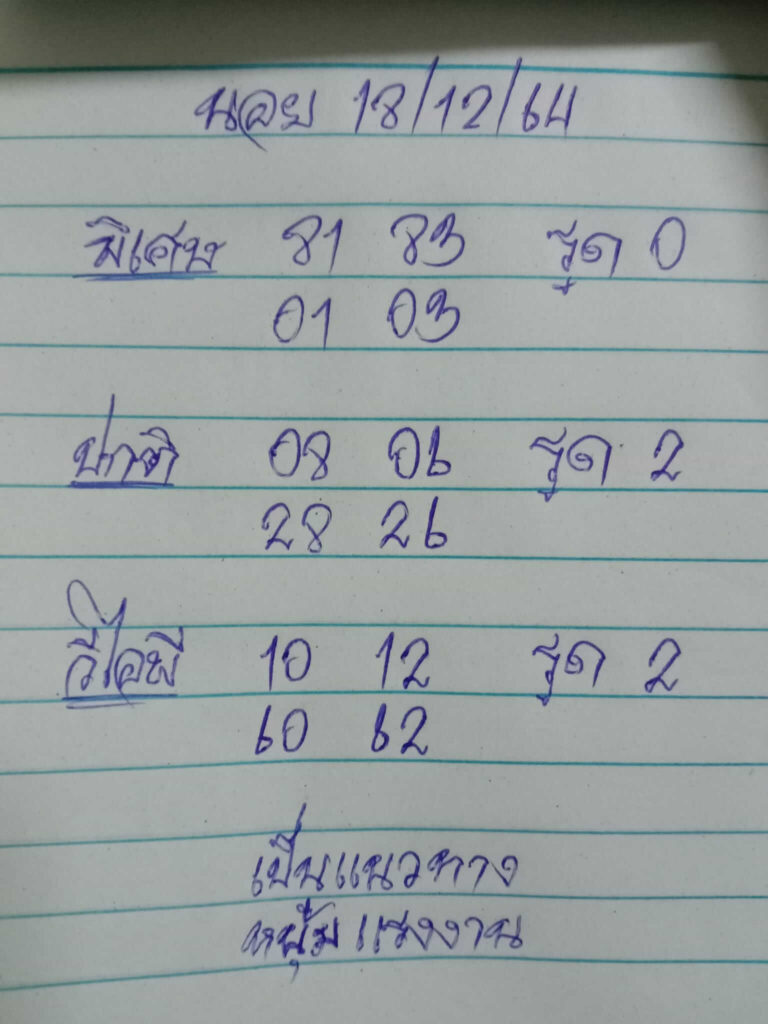 นอย 18/12/64
พิเศษ 81 83 รูด 0
01 03
ปกติ 08 06 รูด 2
28 26
วีไอพี 10 12 รูด 2
60 62
เป็นแนวทาง
หนุ่ม แรงงาน